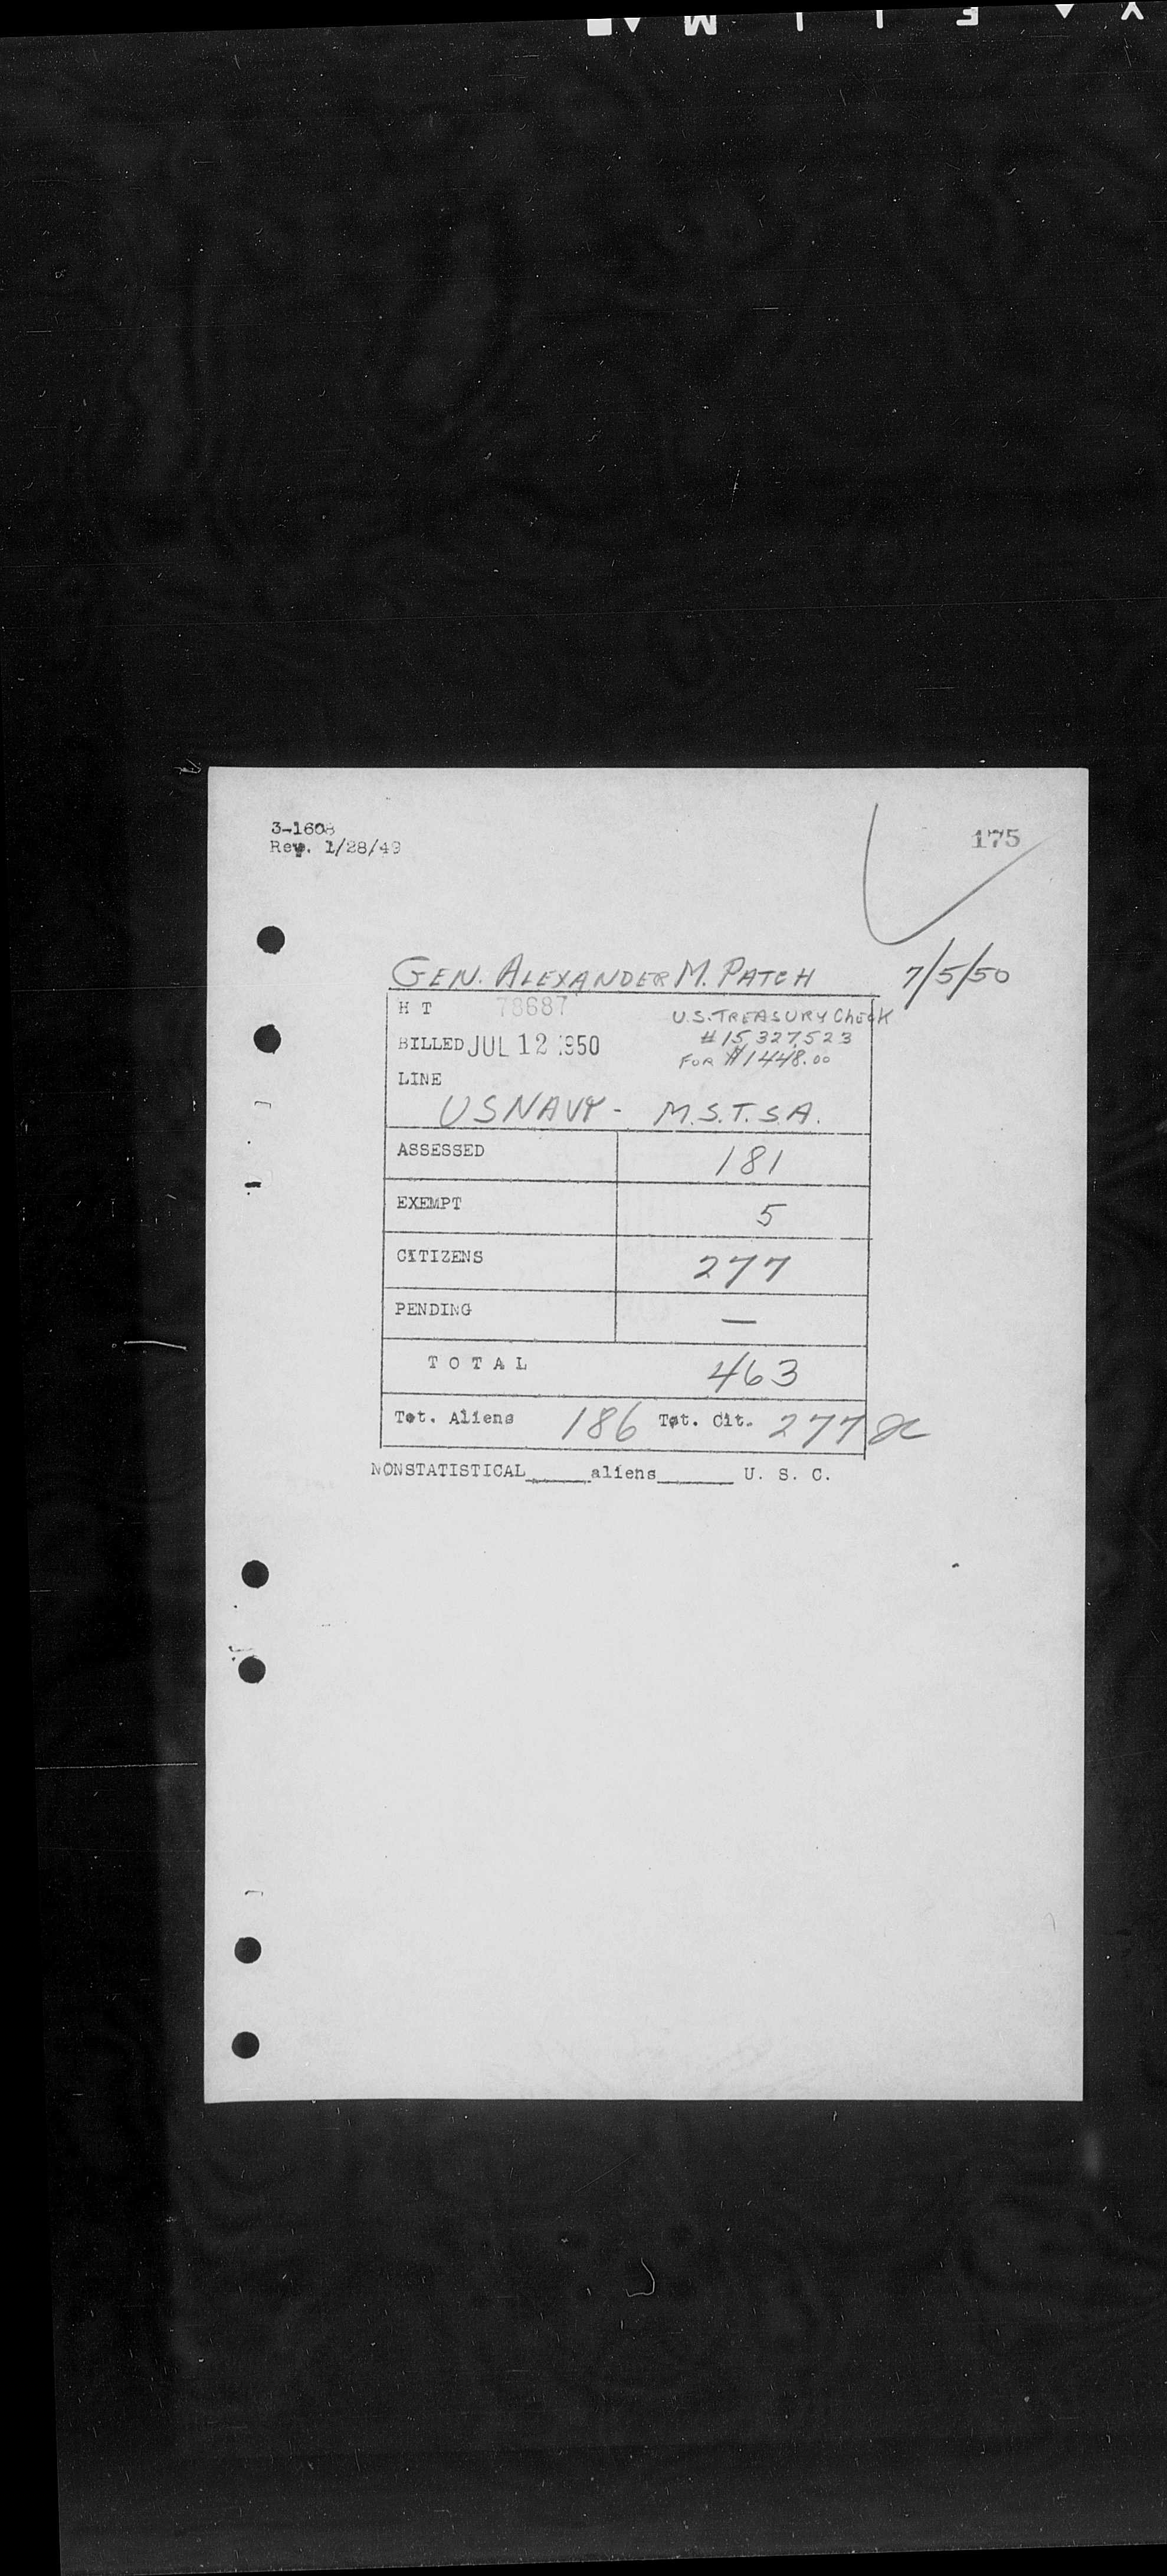 3-1608
Rev. 1/28/49
175
GEN. ALEXANDER M. PATCH 7/5/50
H T 78687 U.S. TREASURY Check
BILLED JUL 12 1950 # 15,327,523
FOR $1448.00
LINE
US NAVY - M.S.T.S.A.
ASSESSED 181
EXEMPT 5
CITIZENS 277
PENDING —
TOTAL 463
Tot. Aliens 186 Tot. Cit. 277
NONSTATISTICAL_____aliens______ U. S. C.